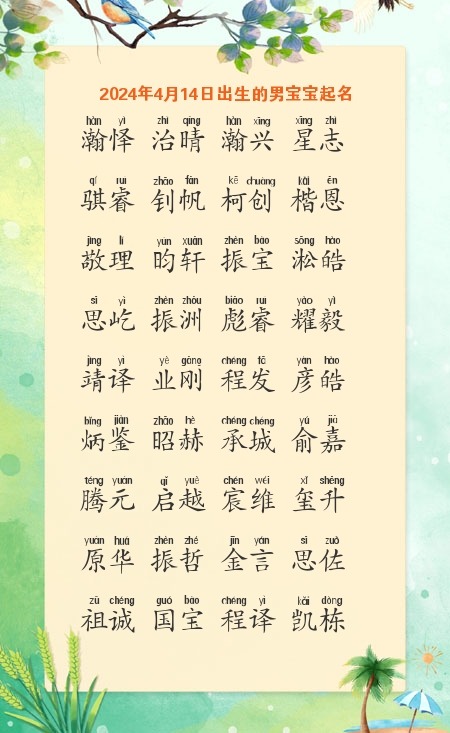 2024年4月14日出生的男宝宝起名
hàn yì zhì qíng hàn xīng xīng zhì
瀚怿 治晴 瀚兴 星志
qí ruì zhāo fān kē chuàng kǎi ēn
骐睿 钊帆 柯创 楷恩
jìng lǐ yún xuān zhèn bǎo sōng hào
敬理 昀轩 振宝 淞皓
sī yì zhèn zhōu biāo ruì yào yì
思屹 振洲 彪睿 耀毅
jìng yì yè gāng chéng fā yàn hào
靖译 业刚 程发 彦皓
bǐng jiàn zhāo hè chéng chéng yú jiā
炳鉴 昭赫 承城 俞嘉
téng yuán qǐ yuè chén wéi xǐ shēng
腾元 启越 宸维 玺升
yuán huá zhèn zhé jīn yán sī zuǒ
原华 振哲 金言 思佐
zǔ chéng guó bǎo chéng yì kǎi dòng
祖诚 国宝 程译 凯栋